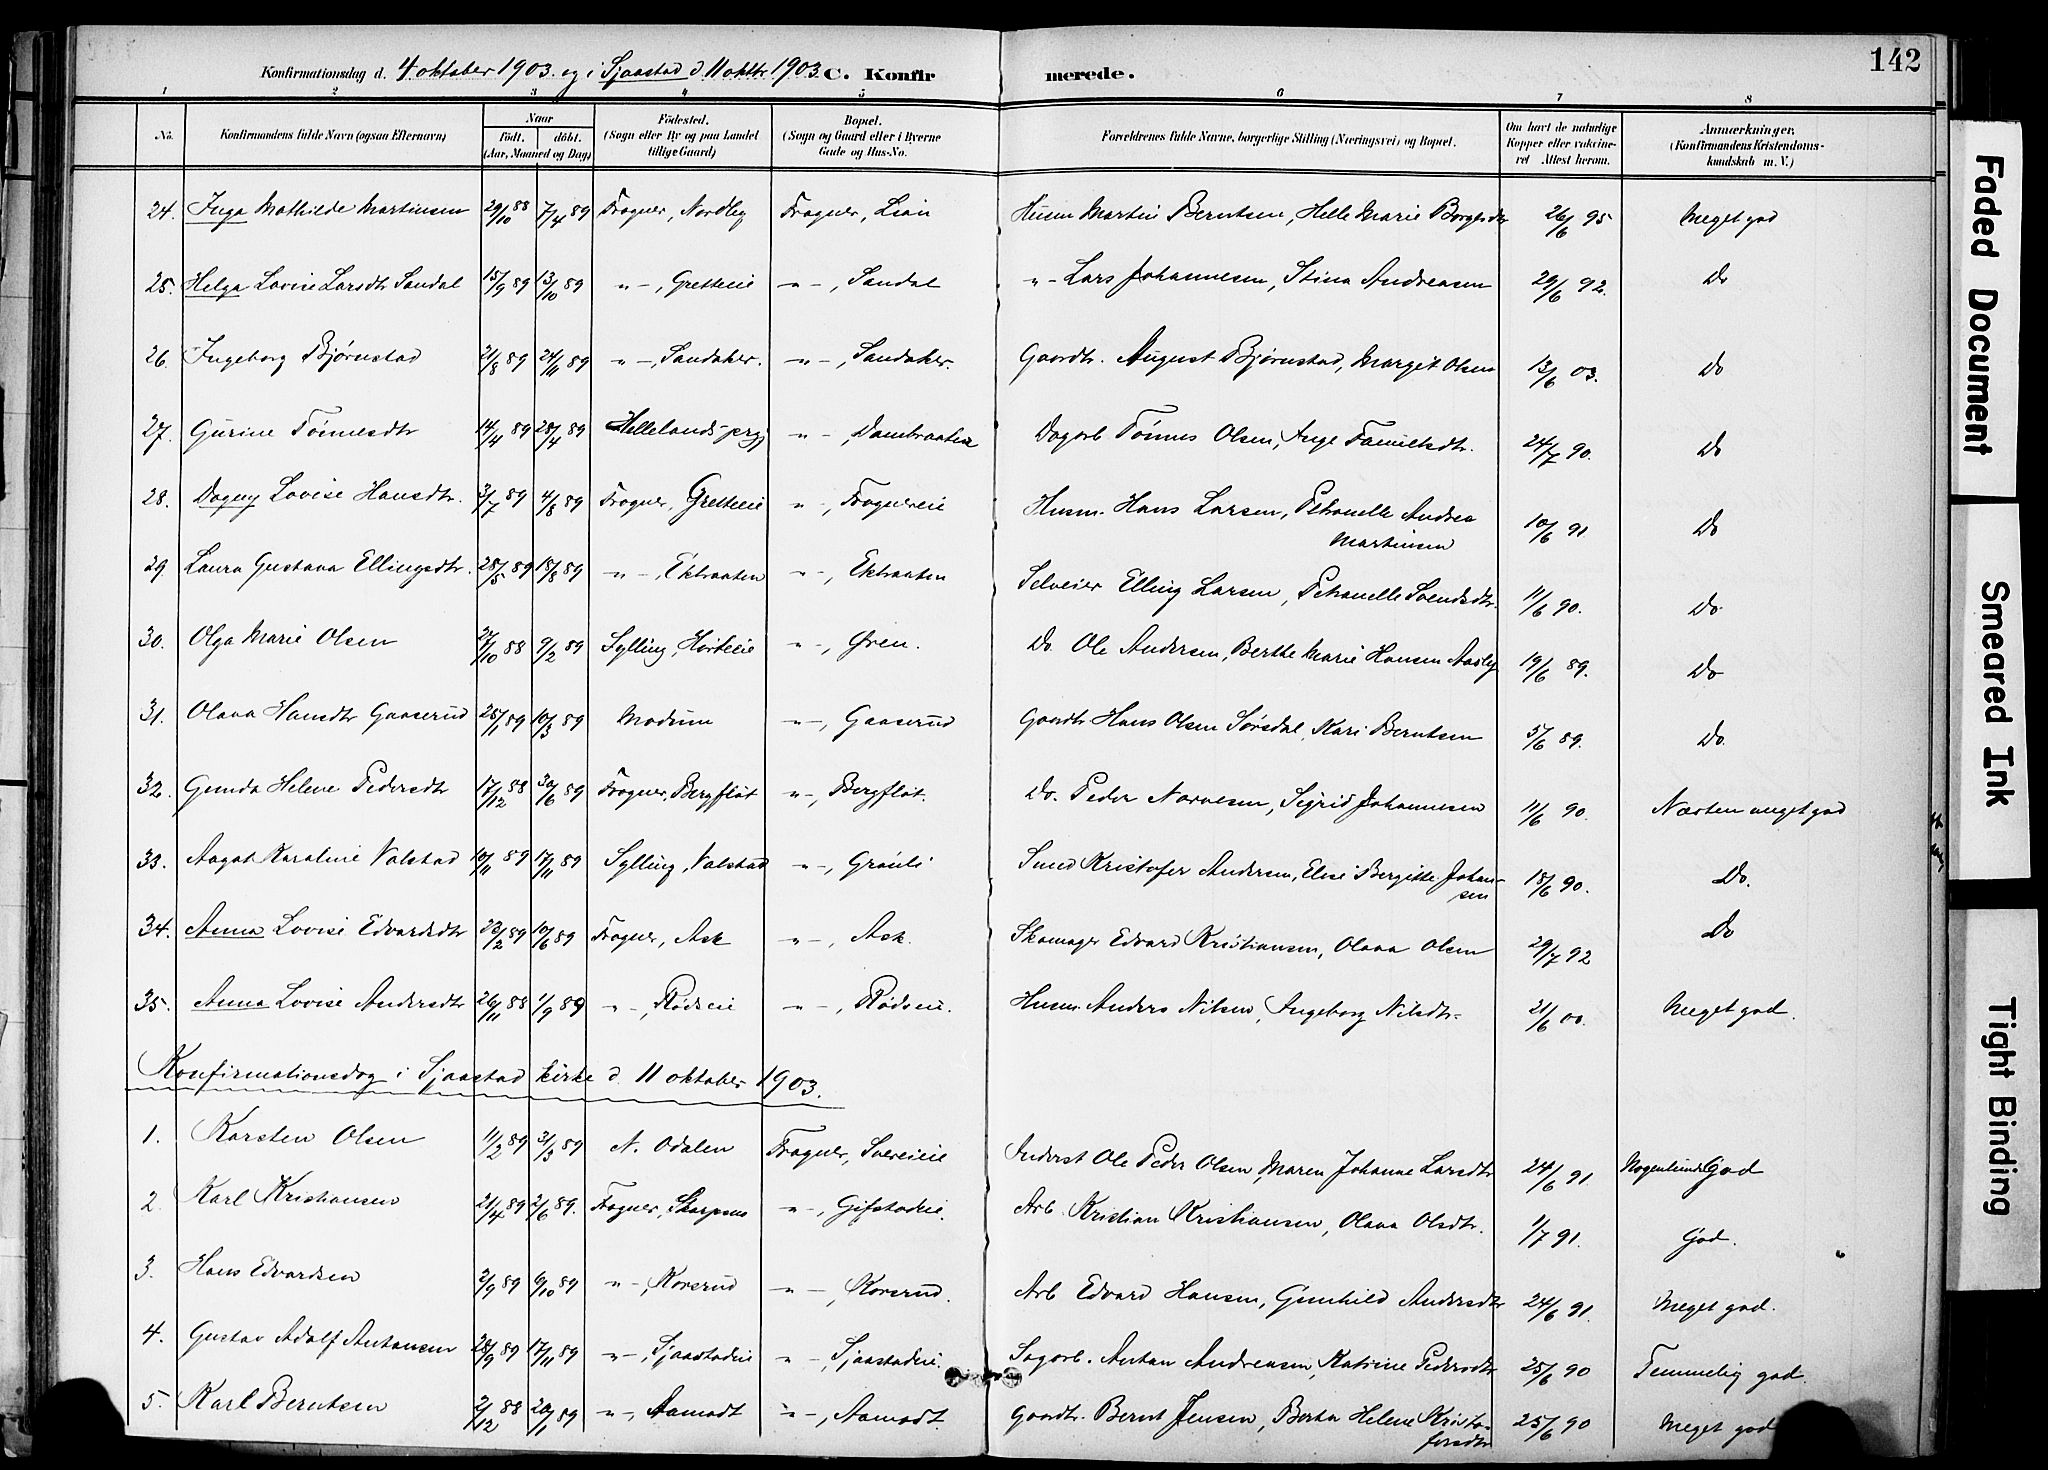 142
Konfirmationsdag d. 4 oktober 1903. og i Sjaastad d. 11 oktbr. 1903. C. Konfirmerede.
1 2 3 4 5 6 7 8
No. Konfirmandens fulde Navn (ogsaa Efternavn) Naar født. døbt. (Aar, Maaned og Dag) Fødested. (Sogn eller By og paa Landet tillige Gaard) Bopæl. (Sogn og Gaard eller i Byerne Gade og Hus-No. Forældrenes fulde Navne, borgerlige Stilling (Næringsvei) og Bopæl. Om havt de naturlige Kopper eller vaccineret Attest herom. Anmærkninger. (Konfirmandens Kristendomskundskab m. V.)
24. Inga Mathilde Martinsen 29/10 88 7/4 89 Frogner, Nordby Frogner, Lian Husm Martin Berntsen, Helle Marie Borgersdtr 26/6 95 Meget god
25. Helga Lovise Larsdtr Sandal 15/9 89 13/10 89 " - , Gretteeie " - , Sandal " - Lars Johannesen, Stina Andreasen 29/6 92. Do
26. Ingeborg Bjørnstad 21/8 89 24/11 89 " - , Sandaker. " - , Sandaker. Gaardbr. August Bjørnstad, Margit Olsen 13/6 03. Do
27. Gurine Tønnesdtr 14/4 89 28/4 89 Hellelands prgj " - , Dambraaten Dagarb Tønnes Olsen, Inge Tønnesdtr. 24/7 90. Do
28. Dagny Lovise Hansdtr. 3/7 89 4/8 89 Frogner, Gretteeie " - , Frognereie Husm. Hans Larsen, Petranelle Andrea Martinsen 10/6 91 Do
29. Laura Gustava Ellingsdtr. 28/5 89 18/8 89 " - , Ekbraaten " - , Ekbraaten Selveier Elling Larsen, Petranelle Svendsdtr. 11/6 90. Do.
30. Olga Marie Olsen 27/10 88 9/2 89 Sylling, Hørteeie " - , Øren. Do Ole Andersen, Berthe Marie Hansen Aasby 19/6 89. Do
31. Olava Hansdtr Gaaserud 25/1 89 10/3 89 Modum " - , Gaaserud Gaardbr Hans Olsen Sørsdal, Kari Berntsen 5/6 89. Do.
32. Gunda Helene Pedersdtr 17/12 88 30/6 89 Frogner, Bergfløt " - , Bergfløt. Do. Peder Narvesen, Sigrid Johannesen 11/6 90. Næsten meget god
33. Aagot Karoline Valstad 10/11 89 17/11 89 Sylling, Valstad " - , Grønli Smed Kristofer Andersen, Elise Bergitte Johansen 18/6 90. Do.
34. Anna Lovise Edvardsdtr 23/2 89 10/6 89 Frogner, Ask " - , Ask. Skomager Edvard Kristiansen, Olava Olsen 29/7 92 Do
35. Anna Lovise Andersdtr 26/11 88 1/9 89 " - , Rødseie " - , Rødseie. Husm. Anders Nilsen, Ingeborg Nilsdtr. 21/6 00. Meget god.
Konfirmationsdag i Sjaastad kirke d. 11 oktober 1903.
1. Karsten Olsen 11/2 89 3/3 89 N. Odalen Frogner, Svereieie Inderst Ole Peder Olsen, Maren Johanne Larsdtr 24/6 91. Nogenlunde God
2. Karl Kristiansen 21/4 89 2/6 89. Frogner, Skarpsno " - , Gifstadeie. Arb. Kristian Kristiansen, Olava Olsdtr. 1/7 91. God.
3. Hans Edvardsen 2/9 89 6/10 89 " - , Korsrud " - , Korsrud. Arb Edvard Hansen, Gunhild Andersdtr 24/6 91. Meget god.
4. Gustav Adolf Antonsen 28/9 89 17/11 89 " - , Sjaastadeie " - , Sjaastadeie. Sagarb. Anton Andreasen, Katrine Pedersdtr 25/6 90 Temmelig god.
5. Karl Berntsen 2/12 88 20/1 89 " - , Aamodt " - , Aamodt. Gaardbr. Bernt Jensen, Berta Helene Kristofersdtr 25/6 90 Meget god
Faded Document
Smeared Ink
Tight Binding